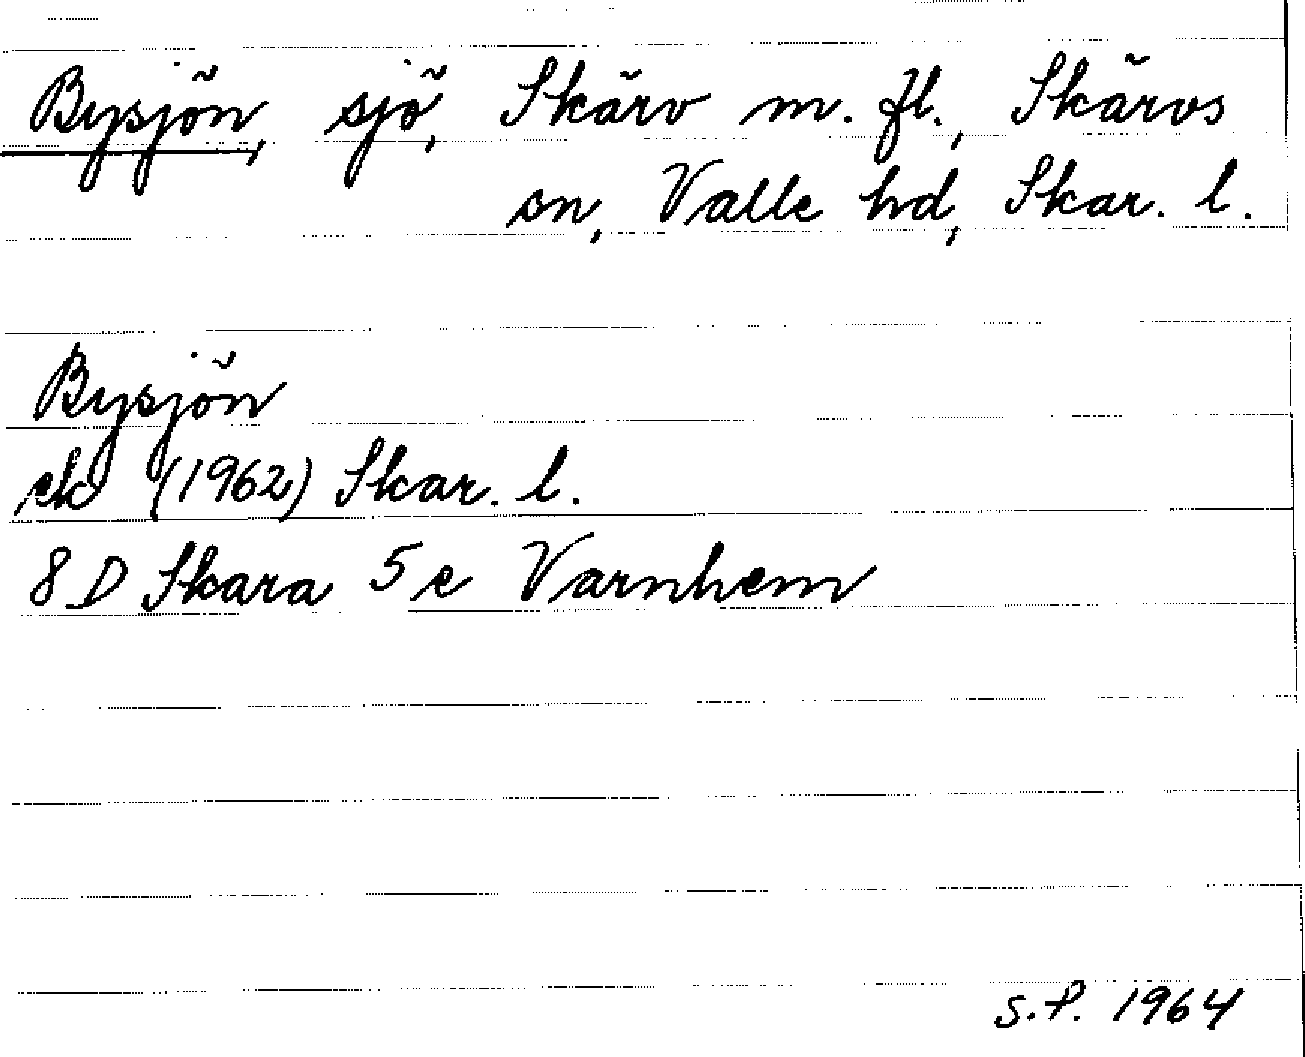 Bysjön, sjö, Skärv m. fl., Skärvs
sn, Valle hd, Skar. l.
Bysjön
ek (1962) Skar. l.
8 D Skara 5 e Varnhem
S.P. 1964